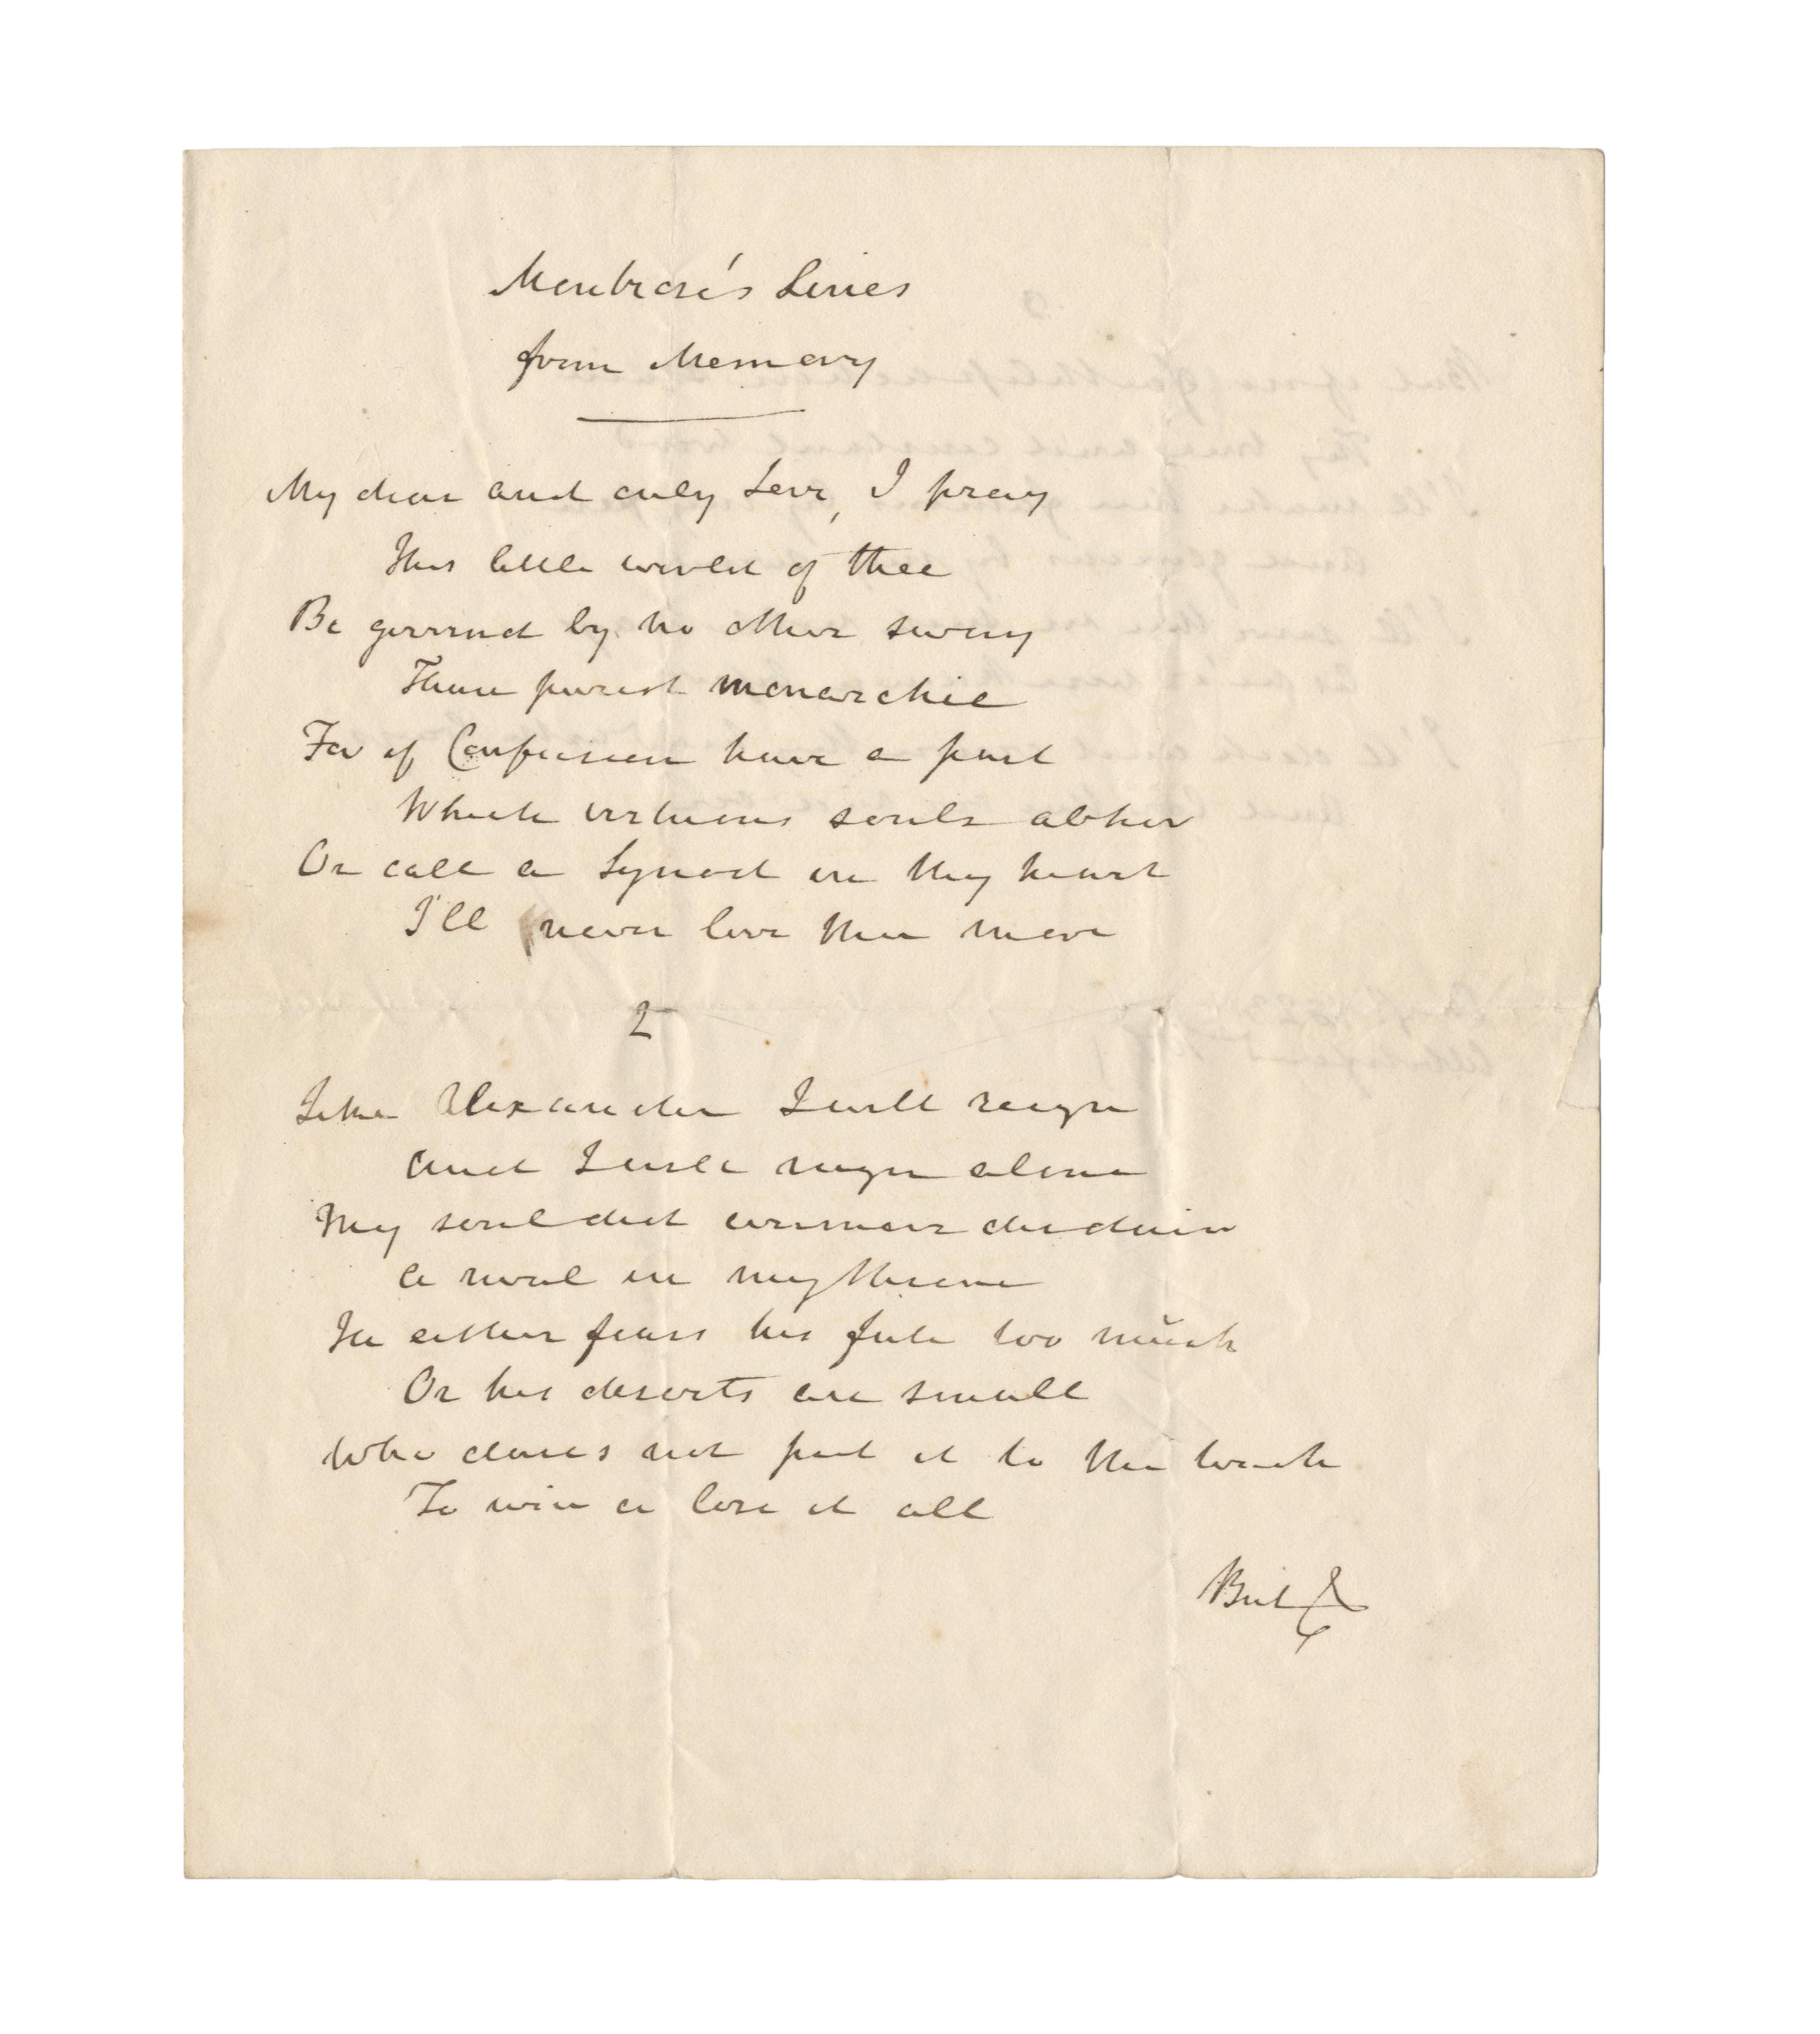 Montrose's Lines
from Memory
My dear and only Love, I pray
This little world of thee
Be governd by no other sway
Than purest monarchie
For if Confusion have a part
Which virtuous souls abhor
Or call a Synod in thy heart
I'll never love thee more
2
Like Alexander I will reign
And I will reign alone
My soul did evermore disdain
A rival in my throne
He either fears his fate too much
Or his deserts are small
Who dares not put it to the touch
To win or lose it all
But